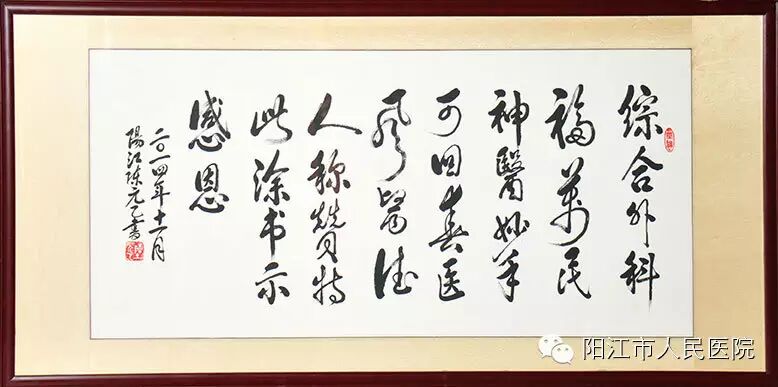 综合外科
福万民
神醫妙手
可回春医
风醫德
人称赞特
此涂书示
感恩
二〇一四年十一月
陽江陈元乙書
阳江市人民医院